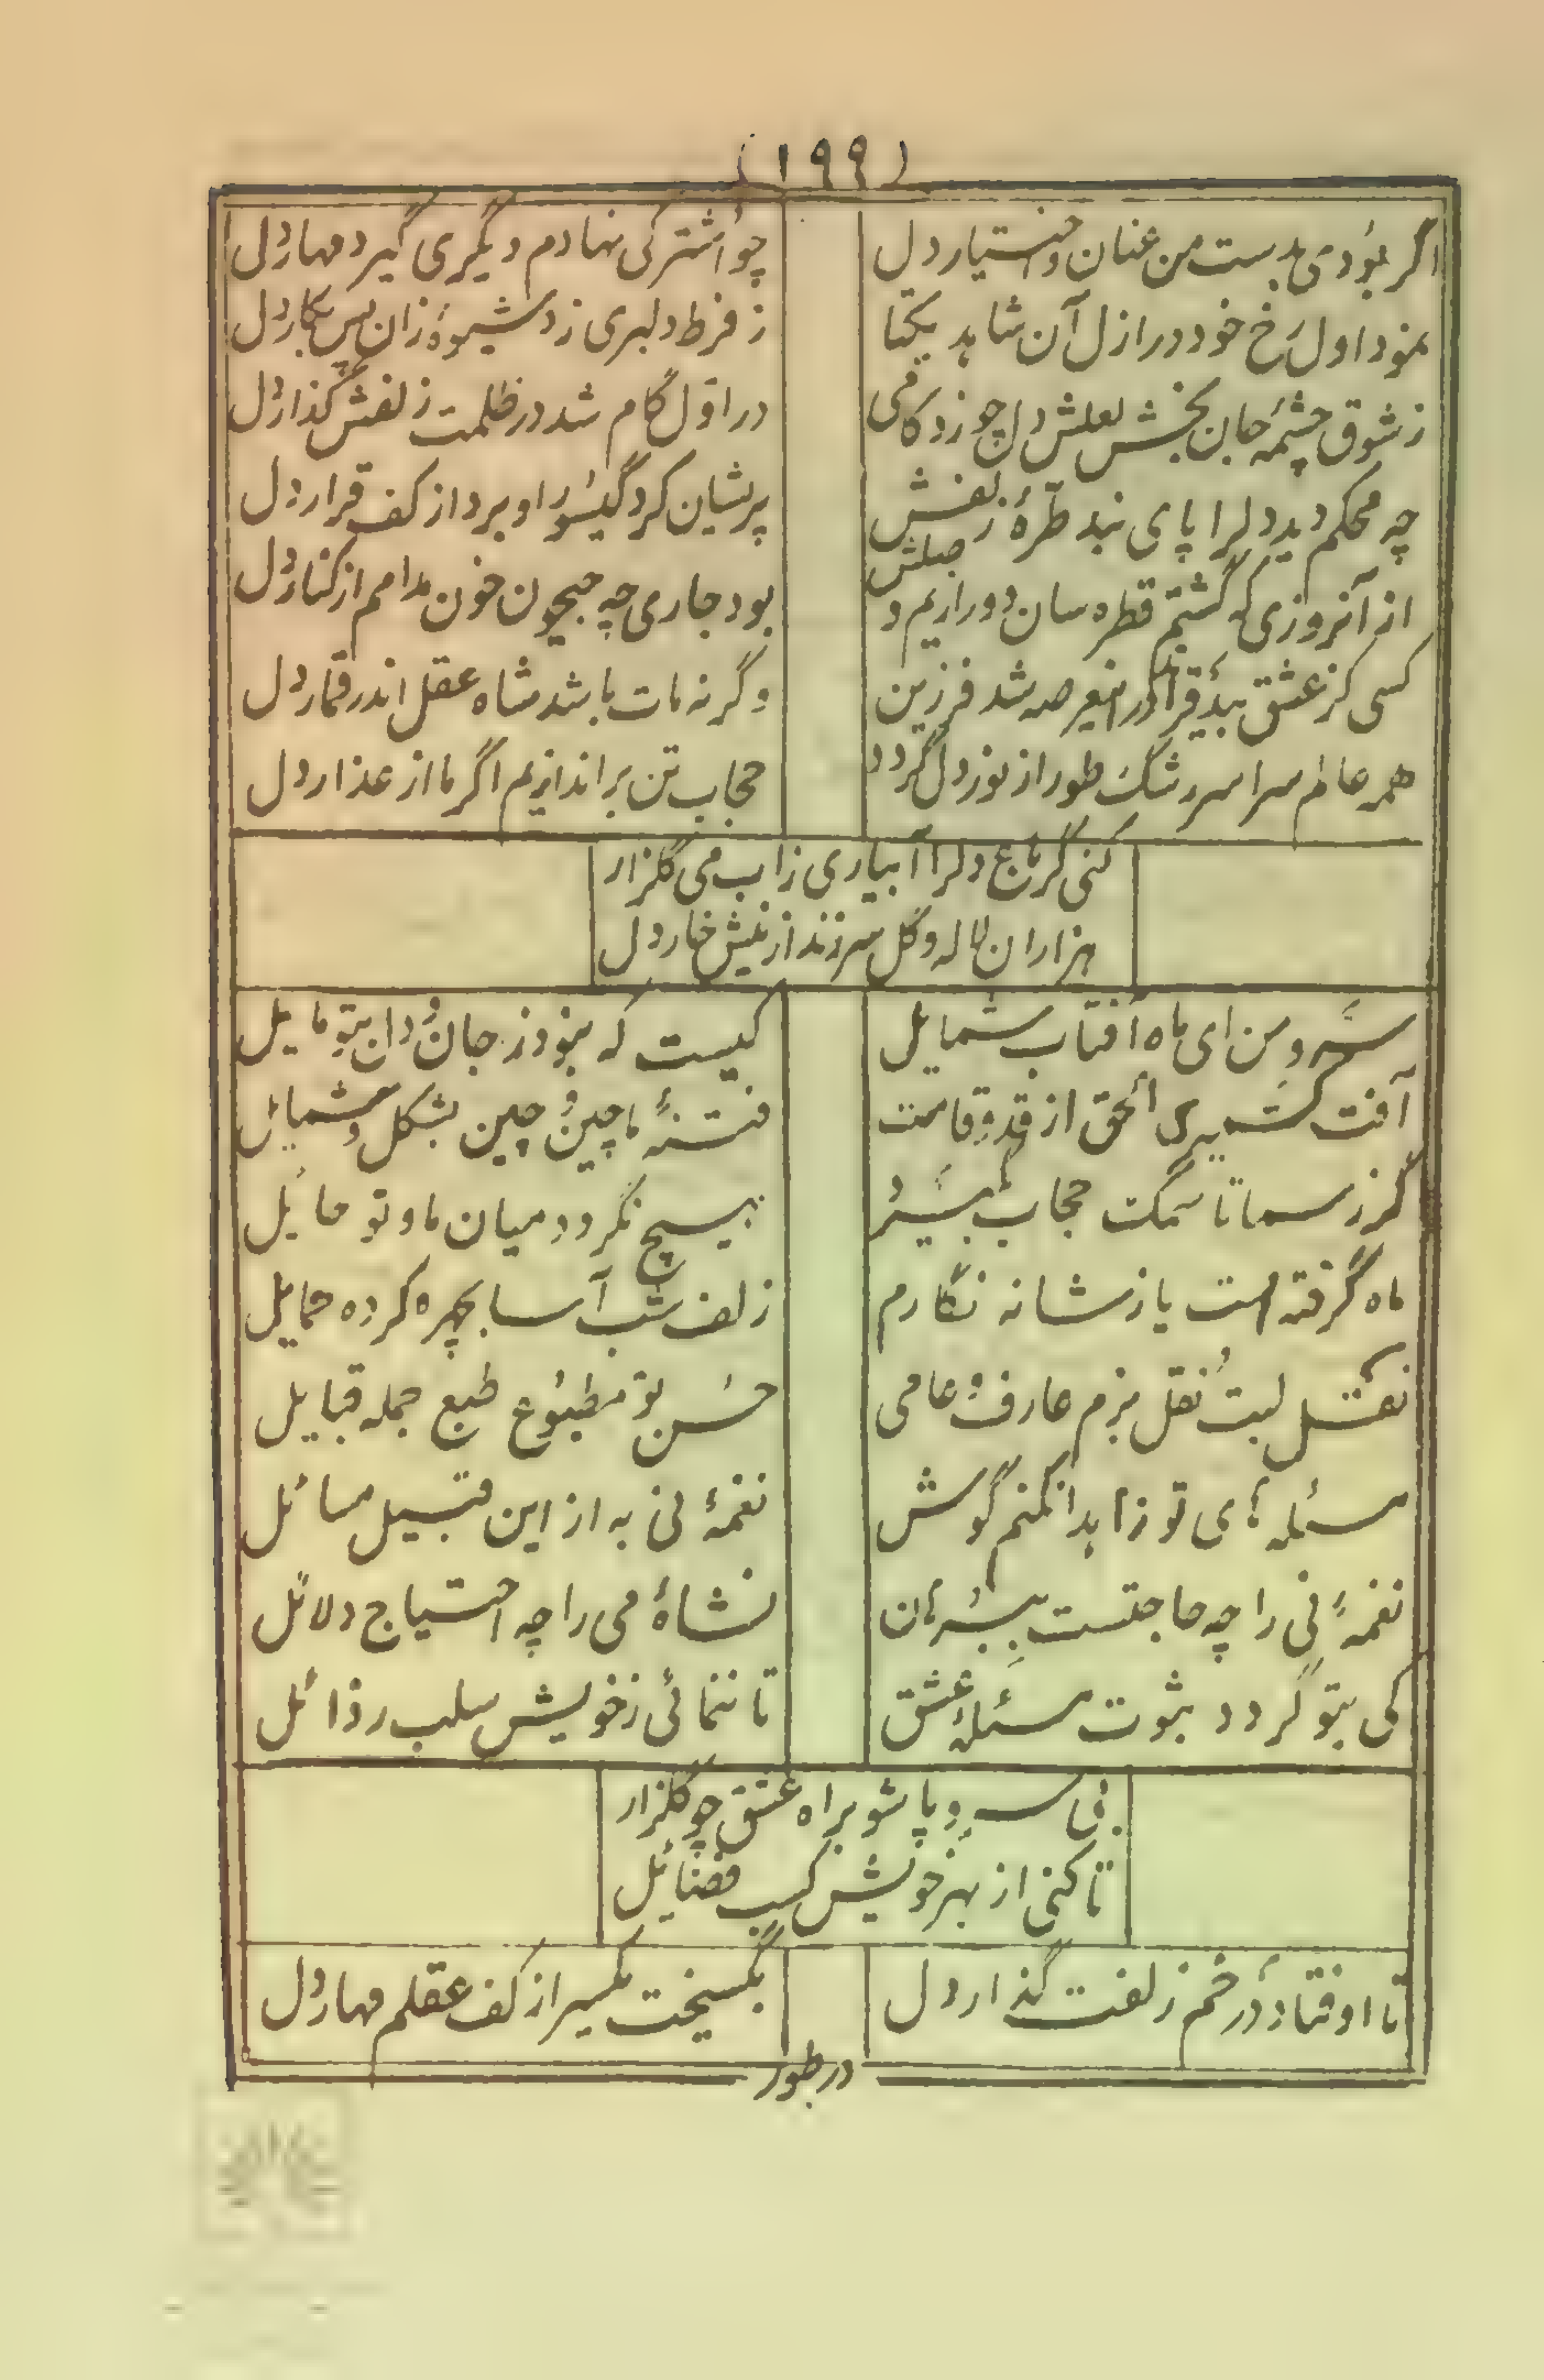 (۱۹۹)
اگر بودی بدست من عنان و اختیار دل
چو اشتر کی نهادم دیگری گیرد مهار دل
نمود اول رخ خود در ازل آن شاهد یکتا
ز فرط دلبری زد شیوه زان پس بکار دل
ز شوق چشمه جان بخش لعلش دل چو زد کامی
در اول گام شد در ظلمت زلفش گذار دل
چه محکم دید دلرا پای بند طره زلفش
پریشان کرد گیسو را و برد از کف قرار دل
از آنروزی که گشتم قطره سان دور از یم وصلش
بود جاری چه جیحون خون مدامم از کنار دل
کسی کز عشق بیدقراند در اینعرصه شد فرزین
وگرنه مات باشد شاه عقل اندر قمار دل
همه عالم سراسر رشک طور از نور دل گردد
حجاب تن براندازیم اگر ما از عذار دل
کنی گر باغ دلرا آبیاری زاب می گلزار
هزاران لاله و گل سرزند از نیش خار دل
سرو من ای ماه آفتاب شمایل
کیست که نبود ز جان و دل بتو مایل
آفت کشمیری الحق از قد و قامت
فتنهٔ ماچین و چین بشکل و شمایل
گر ز سما تا سمک حجاب ببیند
هیچ نگردد میان ما و تو حائل
ماه گرفته است یا ز شانه نگارم
زلف شب آسا بچهره کرده حمایل
نقل لبت نقل بزم عارف و عامی
حسن تو مطبوع طبع جمله قبایل
مسئله های تو زاهدا نکنم گوش
نغمهٔ نی به از این قبیل مسائل
نغمهٔ نی را چه حاجتست ببرهان
نشاهٔ می را چه احتیاج دلائل
کی بتو گردد ثبوت مسئلهٔ عشق
تا ننمائی ز خویش سلب رذائل
بی سر و پا شو براه عشق چو گلزار
تا کنی از بهر خویش کسب فضائل
تا اوفتاد در خم زلفت گذار دل
بگسیخت یکسر از کف عقلم مهار دل
در طور